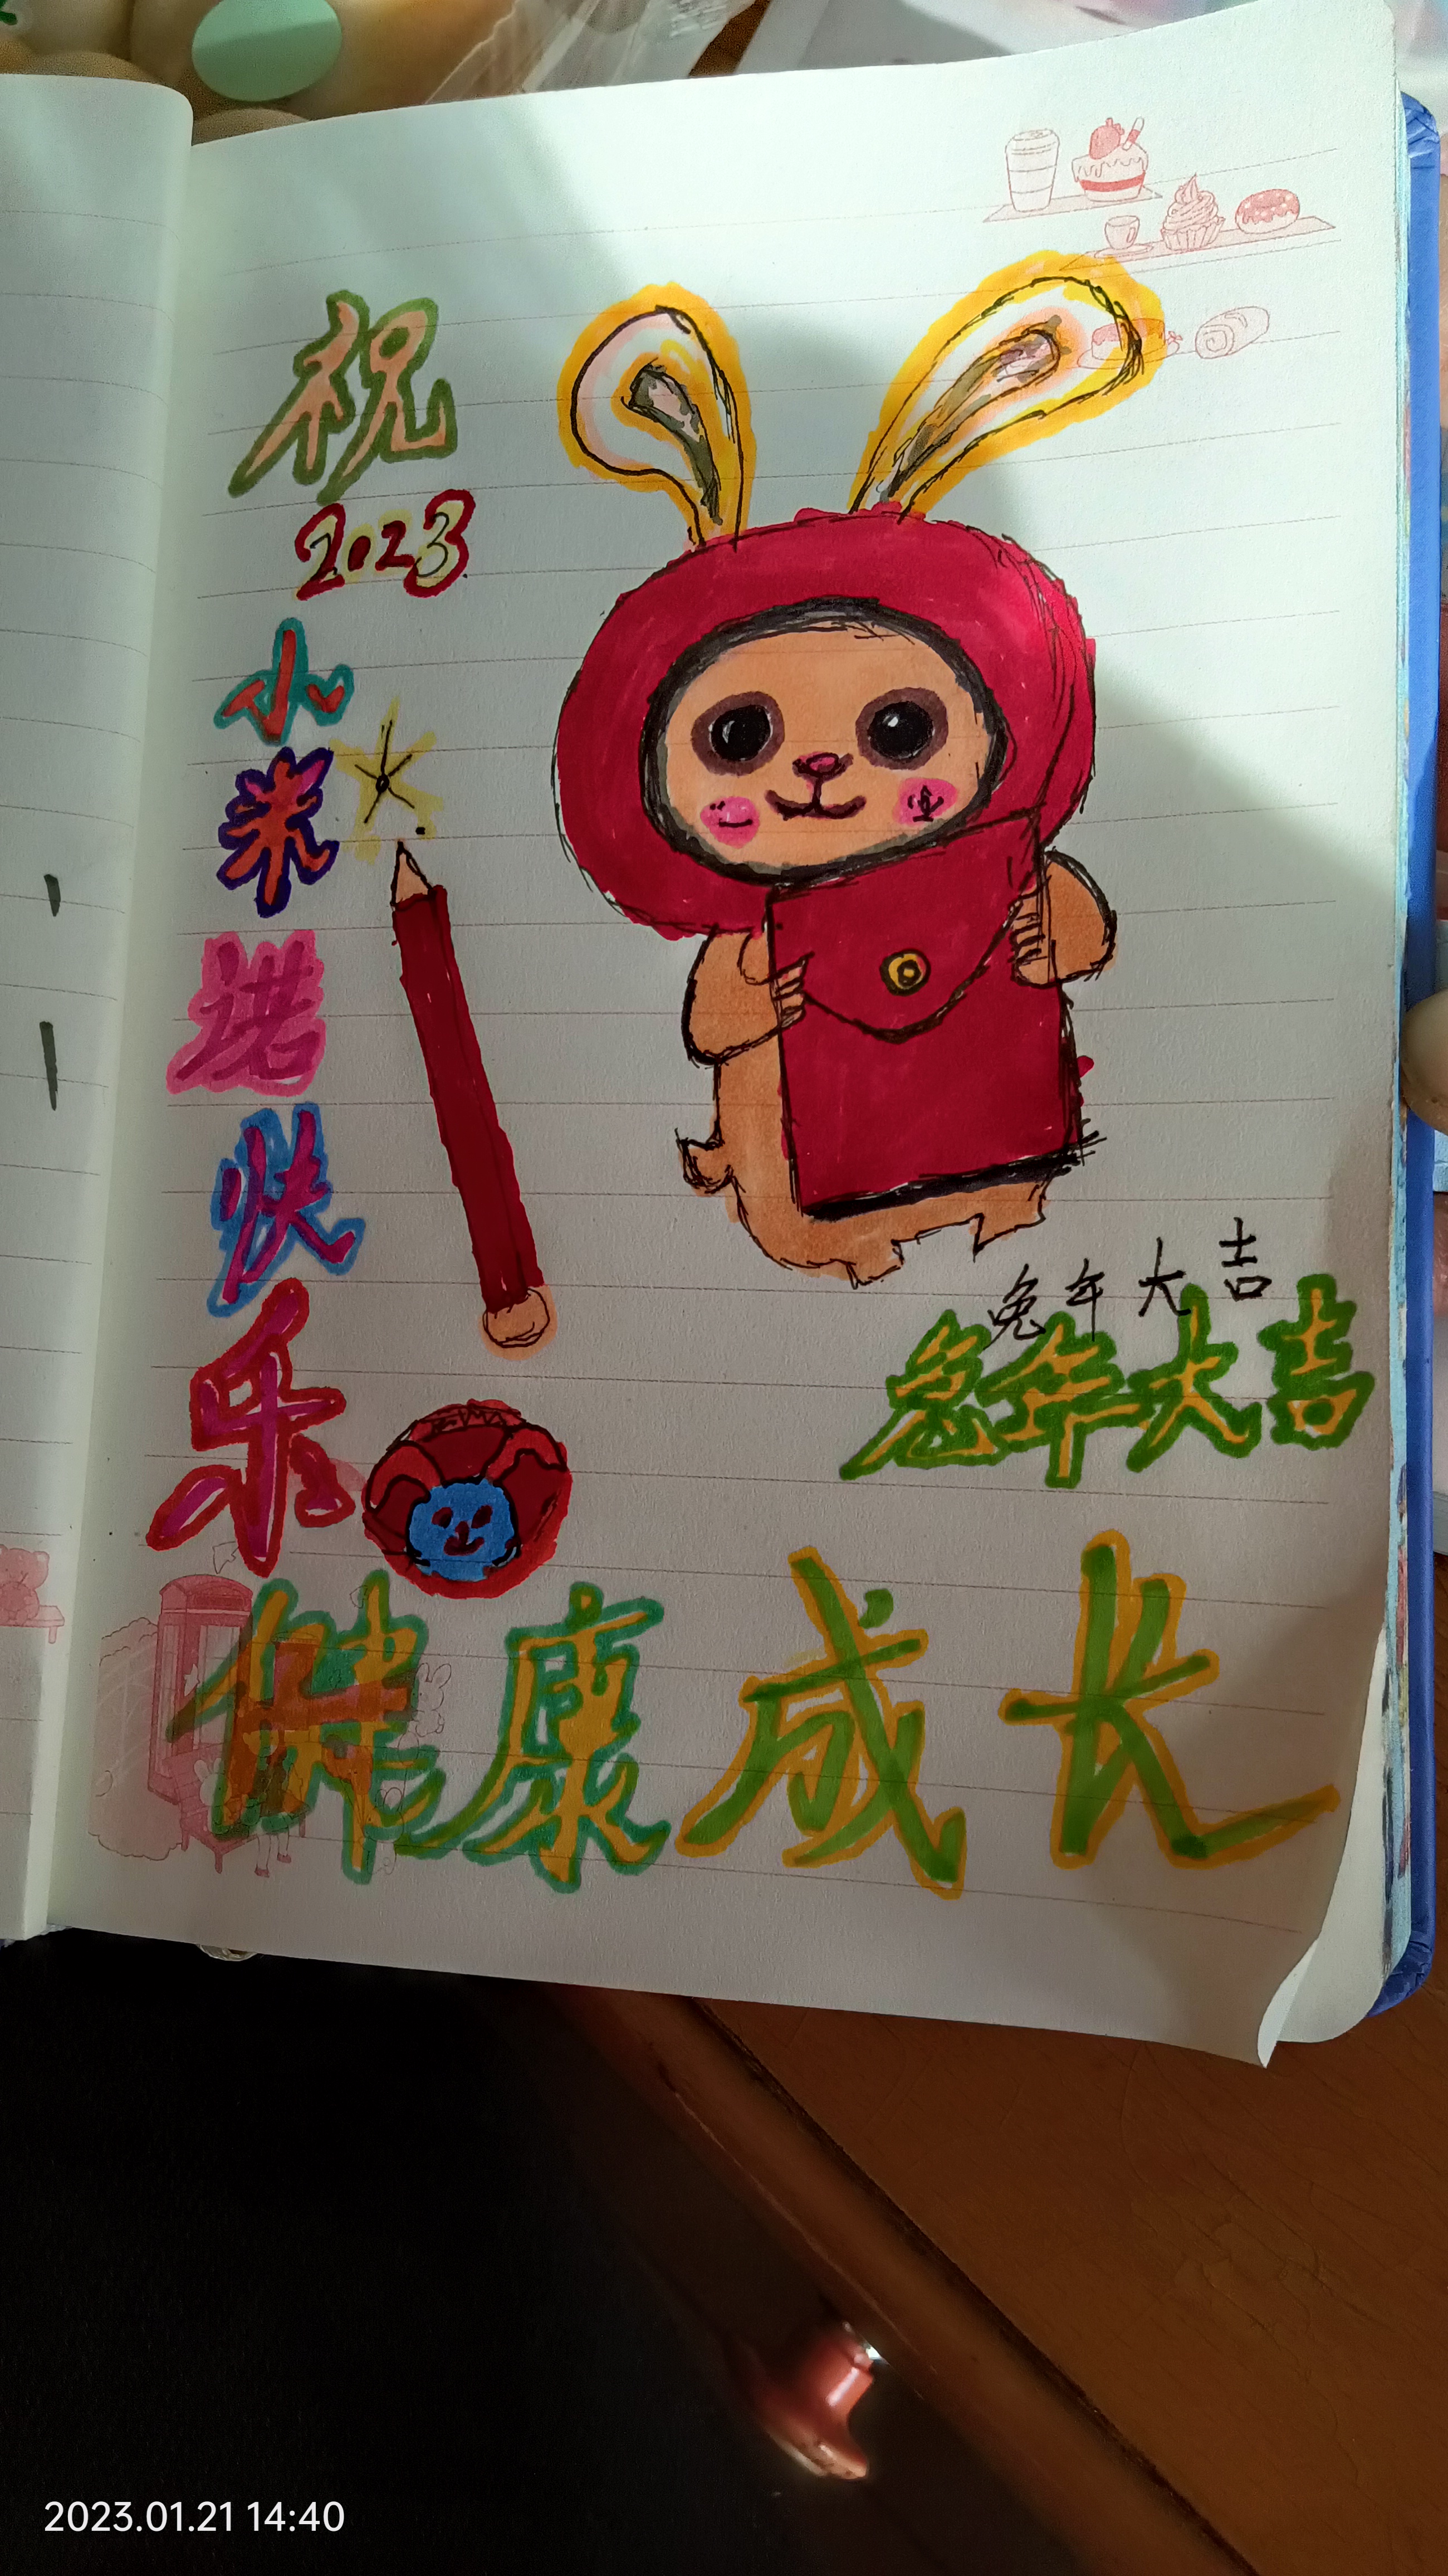 祝
2023
小
米
诺
快
乐
兔年大吉
兔年大吉
健康成长
2023.01.21 14:40